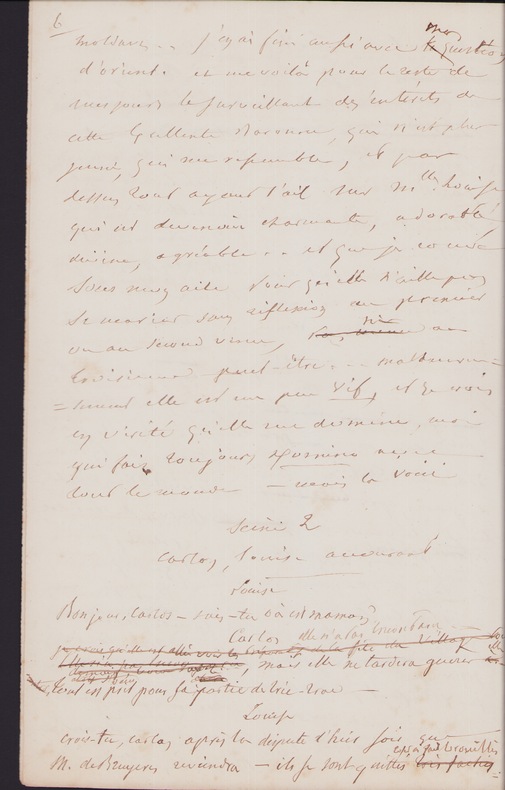 6
moldaves .. j'ai fini aussi avec ma question
d'orient. et me voilà pour le reste de
mes jours le surveillant des intérêts de
cette excellente Baronne, qui n'est plus
jeune, qui me ressemble, et par
dessus tout ayant l'œil sur Mlle Louise
qui est devenue charmante, adorable,
divine, agréable .. et que je couve
sous mon aile pour qu'elle n'aille pas
se marier sans réflexion au premier
ou au second venu, ni au
troisième peut-être ... malheureu=
=sement elle est un peu vif, et je crois
en vérité qu'elle me domine, moi
qui fais toujours domino avec
tout le monde — mais la voici
Scène 2
Carlos, Louise accourant
Louise
Bonjour, Carlos — sais-tu où est maman?
Carlos elle n'a pas
mais elle ne tardera guère
tout est prêt pour sa partie de tric-trac —
Louise
crois-tu, Carlos, après la dispute d'hier soir, que
M. de Bruyères reviendra — ils se sont quittés